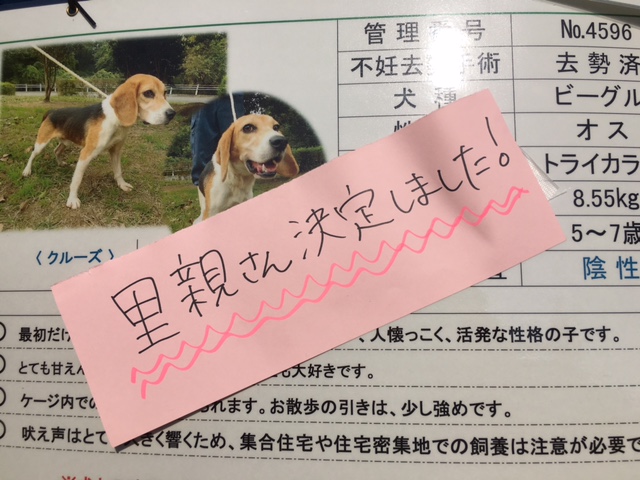 管理番号 No.4596
不妊去 手術 去勢済
犬種 ビーグル
オス
トライカラ
8.55kg
5～7歳
陰性
〈クルーズ〉
里親さん決定しました!
最初だけ 、人懐っこく、活発な性格の子です。
とても甘えん も大好きです。
ケージ内での られます。お散歩の引きは、少し強めです。
吠え声はとて きく響くため、集合住宅や住宅密集地での飼養は注意が必要で